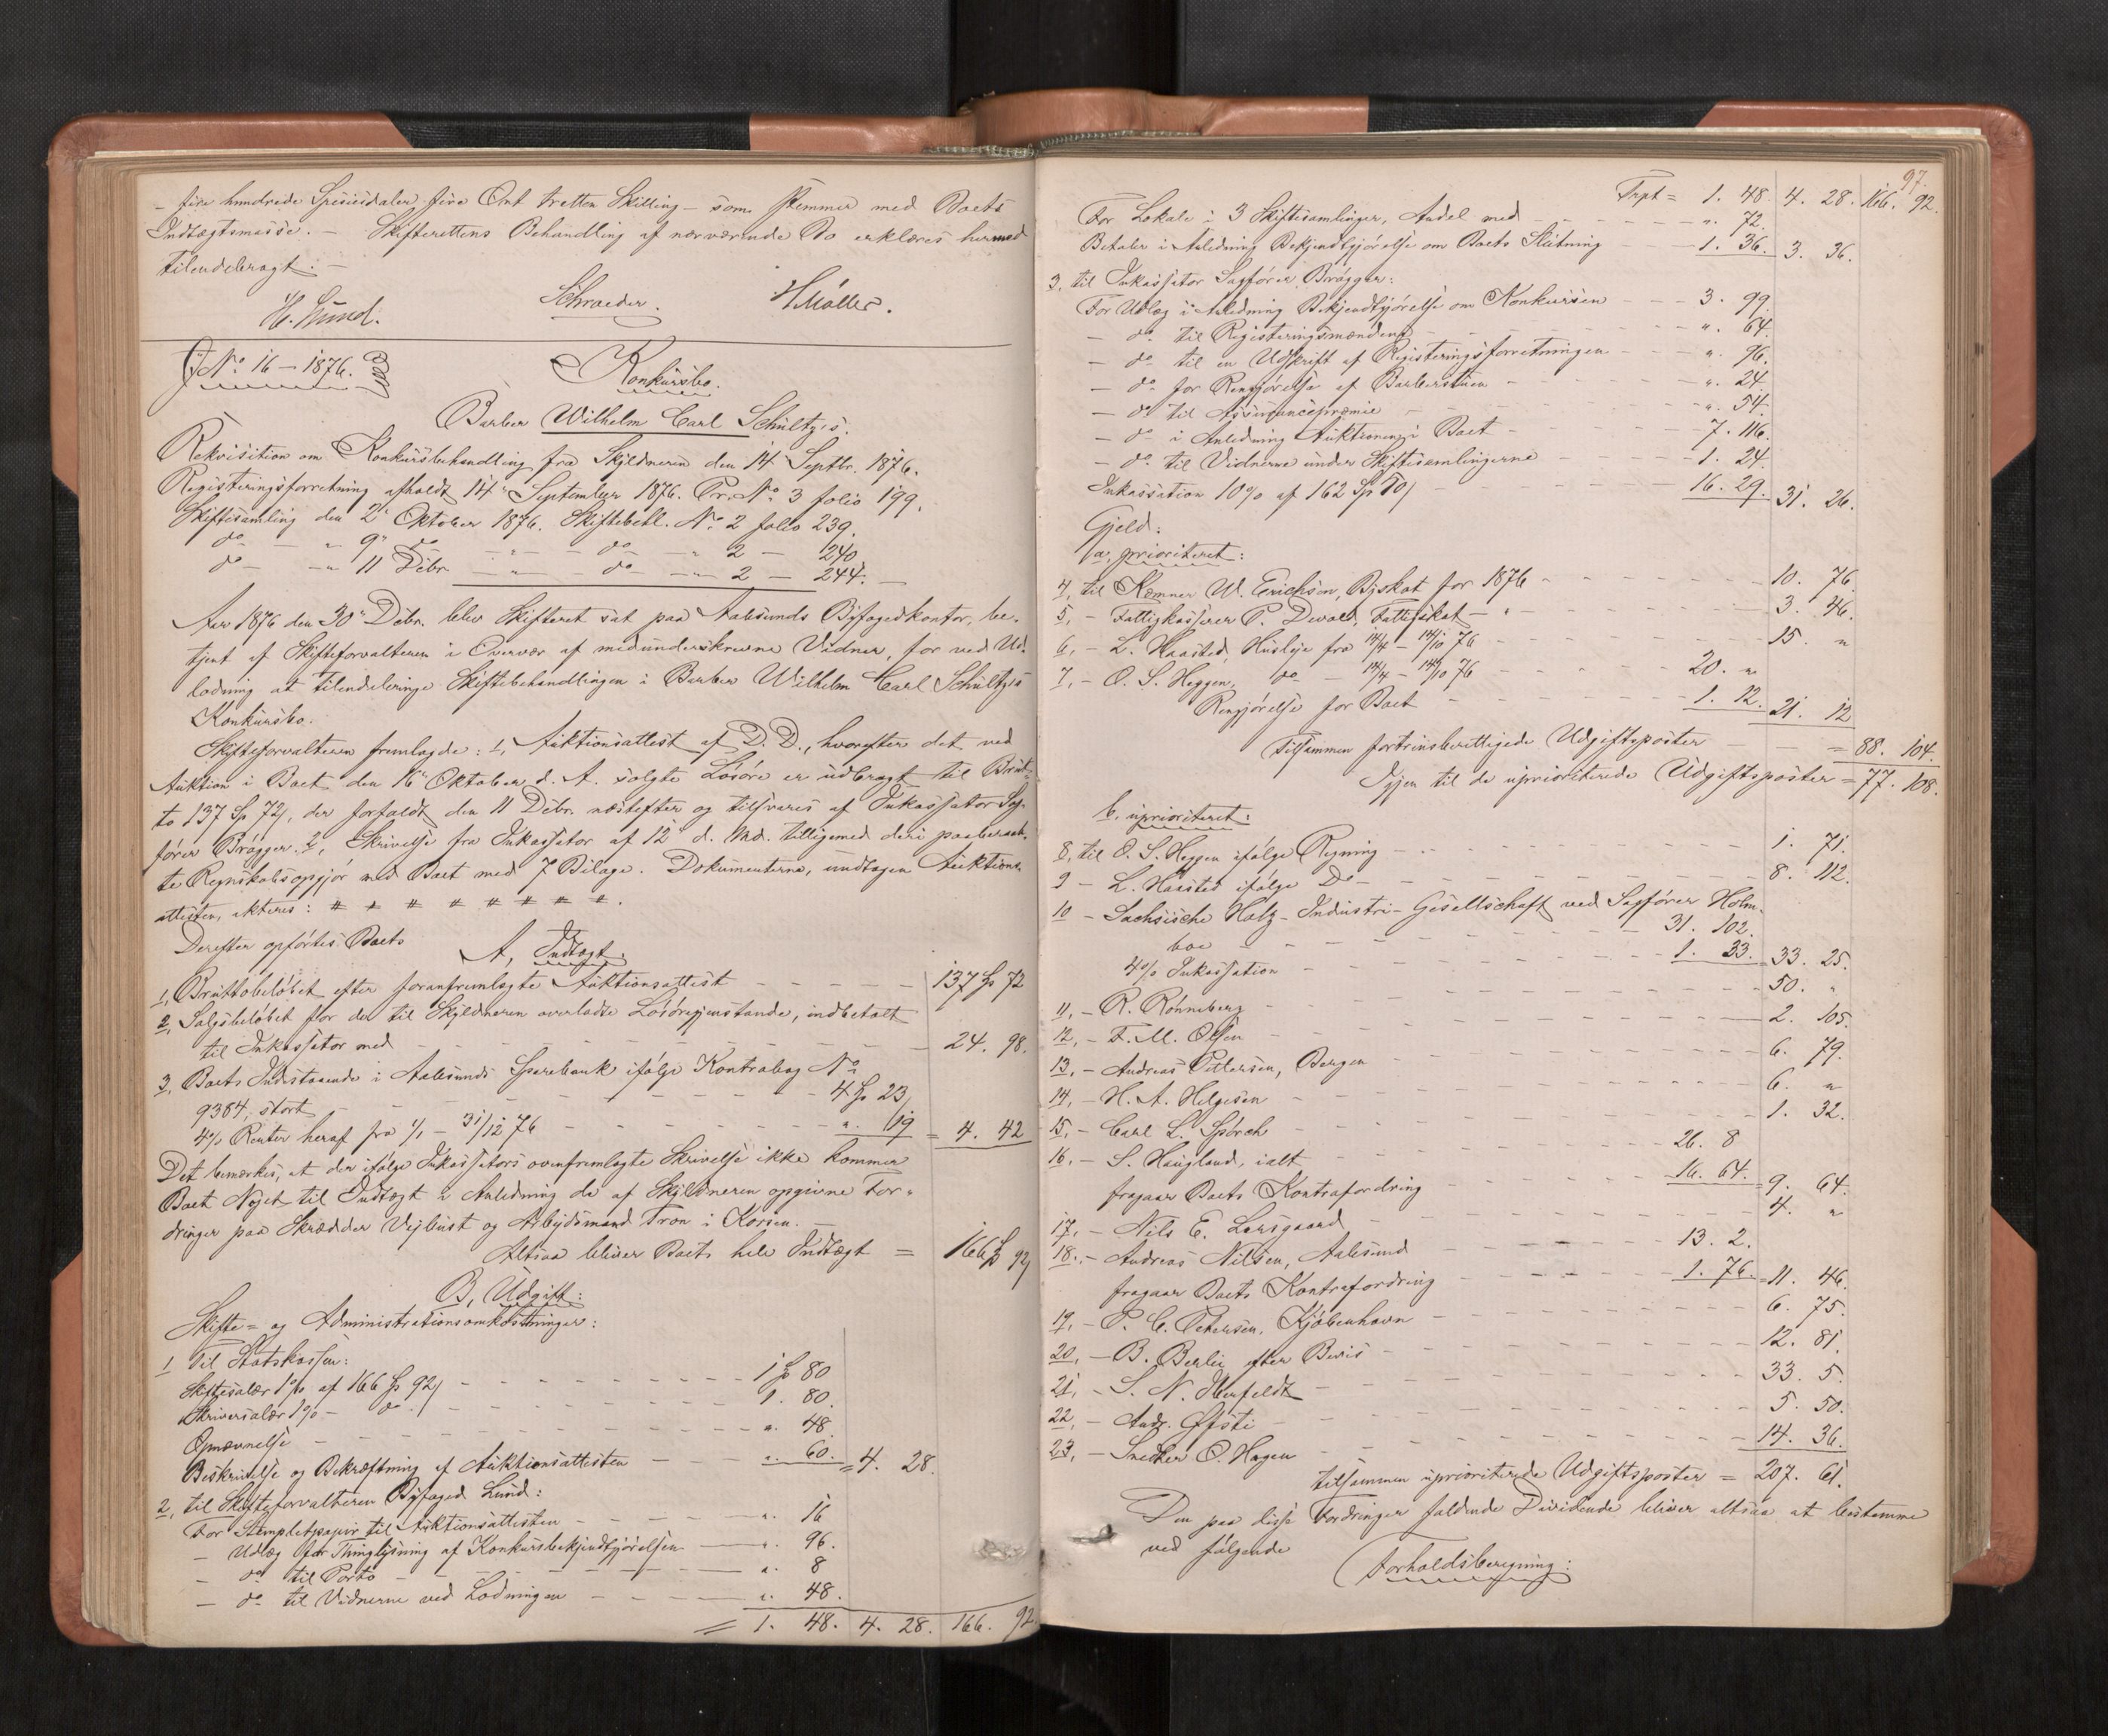 – fire hundrede Speciesdaler fire Ort tretten Skilling – som stemmer med Boets
Indtægtsmasse. – Skifterettens Behandling af nærværende Bo erklæres hermed
tilendebragt. –
H. Lund. Schroeder. H Møller.
No 16 – 1876. Konkursbo.
Barber Wilhelm Carl Schultz's.
Rekvisition om Konkursbehandling fra Skyldneren den 14 Septbr. 1876.
Registeringsforretning afholdt 14 September 1876. Pr. No 3 folio 199.
Skiftesamling den 2 Oktober 1876. Skiftebehl. No 2 folio 239.
do – " 9 do – " – do – " 2 – 240
do – " 11 Debr – " – do – " 2 – 244. –
Aar 1876 den 30 Debr. blev Skifteret sat paa Aalesunds Byfogedkontor, be-
tjent af Skifteforvalteren i Overvær af medunderskrevne Vidner, for ved Ud-
lodning at tilendebringe Skiftebehandlingen i Barber Wilhelm Carl Schultz's
Konkursbo.
Skifteforvalteren fremlagde: 1, Auktionsattest af D. D., hvorefter det ved
Auktion i Boet den 16 Oktober d. A. solgte Løsøre er udbragt til Brut-
to 137 Sp 72/, der forfaldt den 11 Debr. næstefter og tilsvares af Inkassator Sag-
fører Brøgger. 2, Skrivelse fra Inkassator af 12 d. Md. tilligemed deri paaberaab-
te Regnskabsopgjør med Boet med 7 Bilage. Dokumenterne, undtagen Auktions-
attesten, akteres: # # # # # # # #.
Derefter opførtes Boets
A, Indtægt.
1, Bruttobeløbet efter foranfremlagte Auktionsattest – – – – – 137 Sp 72
2, Salgsbeløbet for de til Skyldneren overladte Løsøregjenstande, indbetalt
til Inkassator med – – – – – 24. 98.
3, Boets Indestaaende i Aalesunds Sparebank ifølge Kontrabog No
9384, stort – – – – – 4 Sp 23/
4% Renter heraf fra 1/1 – 31/12 76 – – – – – ". 19 = 4. 42
Det bemærkes, at der ifølge Inkassators ovenfremlagte Skrivelse ikke kommer
Boet Noget til Indtægt i Anledning de af Skyldneren opgivne For-
dringer paa Skrædder Vejbust og Arbejdsmand Tron i Korsen. –
Altsaa bliver Boets hele Indtægt = 166 Sp 92/
B, Udgift:
Skifte- og Administrationsomkostninger:
1 Til Statskassen:
Skiftesalær 1% af 166 Sp 92/ – – – – – 1 Sp 80
Skriversalær 1% – do / – – – – – 1. 80.
Opnævnelse – – – – – ". 48.
Beskrivelse og Bekræftning af Auktionsattesten – – – ". 60. = 4. 28.
2, til Skifteforvalteren Byfoged Lund:
For Stempletpapir til Auktionsattesten – – – – – ". 16
– Udlæg for Thinglysning af Konkursbekjendtgjørelsen – – ". 96.
– do til Porto – – – – – ". 8
– do til Vidnerne ved Lodningen – – – – – ". 48.
= 1. 48. 4. 28. 166. 92
97.
Trpt = 1. 48. 4. 28. 166. 92.
For Lokale i 3 Skiftesamlinger, Andel med – – – ". 72.
Betaler i Anledning Bekjendtgjørelse om Boets Slutning – – 1. 36. 3. 36.
3, til Inkassator Sagfører Brøgger:
For Udlæg i Anledning Bekjendtgjørelse om Konkursen – – – 3. 99.
– do til Registeringsmændene – – – – – ". 64.
– do til en Udskrift af Registeringsforretningen – – – ". 96.
– do for Rengjørelse af Barberstuen – – – – – ". 24.
– do til Assurancepræmie – – – – – ". 54.
– do i Anledning Auktionen i Boet – – – – – 7. 116.
– do til Vidnerne under Skiftesamlingerne – – – – – 1. 24.
Inkassation 10% af 162 Sp 50/ – – – – – 16. 29. 31. 26.
Gjeld:
a, prioriteret:
4, til Kemner W. Erichsen, Byskat for 1876 – – – – – 10. 76.
5, – Fattigkasserer P. Devold, Fattigskat – " – – – – – 3. 46.
6, – L. Haasted, Husleje fra 14/4 – 14/10 76 – – – – – 15. "
7, – O. S. Heggen, do – 14/4 – 14/10 76 – – – – – 20. "
Rengjørelse for Boet – – – – – 1. 12. 21. 12
Tilsammen fortrinsberettigede Udgiftsposter – – = 88. 104.
Igjen til de uprioriterede Udgiftsposter = 77. 108.
b. uprioriteret:
8, til O. S. Heggen ifølge Regning – – – – – 1. 71.
9 – L. Haasted ifølge Do – – – – – 8. 112.
10 – Sachsische Holz-Industri-Gesellschaft ved Sagfører Holm-
boe – – – – – 31. 102.
4% Inkassation – – – – – 1. 33. = 33. 25.
11, – R. Rønneberg – – – – – 50. "
12, – F. M. Olsen – – – – – 2. 105.
13, – Andreas Pettersen, Bergen – – – – – 6. 79.
14, – H. A. Helgesen – – – – – 6. "
15, – Carl L. Spørck – – – – – 1. 32.
16, – S. Haugland, ialt – – – – – 26. 8
fragaar Boets Kontrafordring – – – – – 16. 64. = 9. 64.
17, – Nils E. Larsgaard – – – – – 4. "
18, – Andreas Nilsen, Aalesund – – – – – 13. 2.
fragaar Boets Kontrafordring – – – – – 1. 76. = 11. 46.
19, – P. C. Petersen, Kjøbenhavn – – – – – 6. 75.
20, – B. Berlie efter Bevis – – – – – 12. 81.
21, – S. N. – – – – – 33. 5.
22, – Andr. Øfsti – – – – – 5. 50.
23, – Snedker O. Hagen – – – – – 14. 36.
tilsammen uprioriterede Udgiftsposter = 207. 61.
Den paa disse Fordringer faldende Dividende bliver altsaa at bestemme
ved følgende
Forholdsberegning: